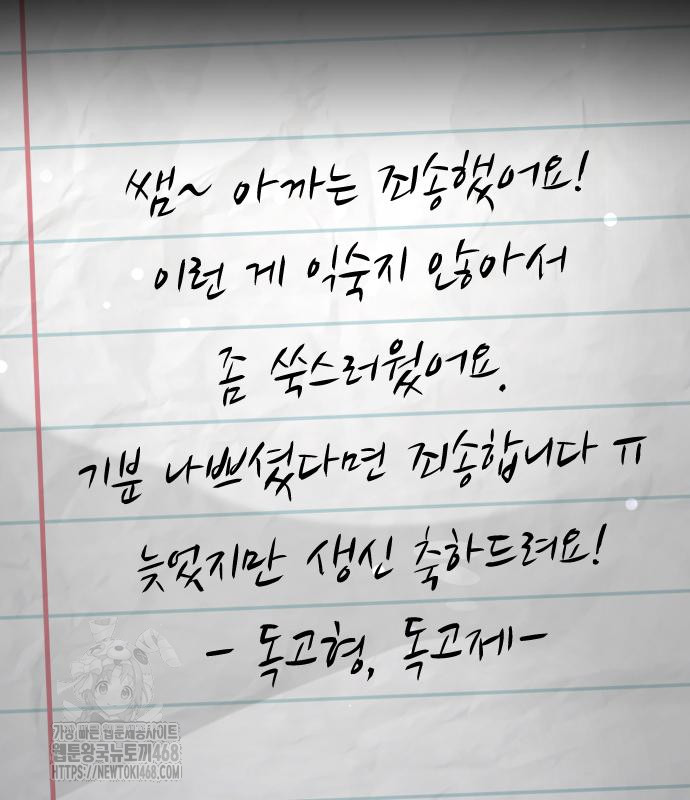 쌤~ 아까는 죄송했어요!
이런 게 익숙지 않아서
좀 쑥스러웠어요.
기분 나쁘셨다면 죄송합니다 ㅠ
늦었지만 생신 축하드려요!
- 독고형, 독고제-
가장 빠른 웹툰제공사이트
웹툰왕국뉴토끼468
HTTPS://NEWTOKI468.COM